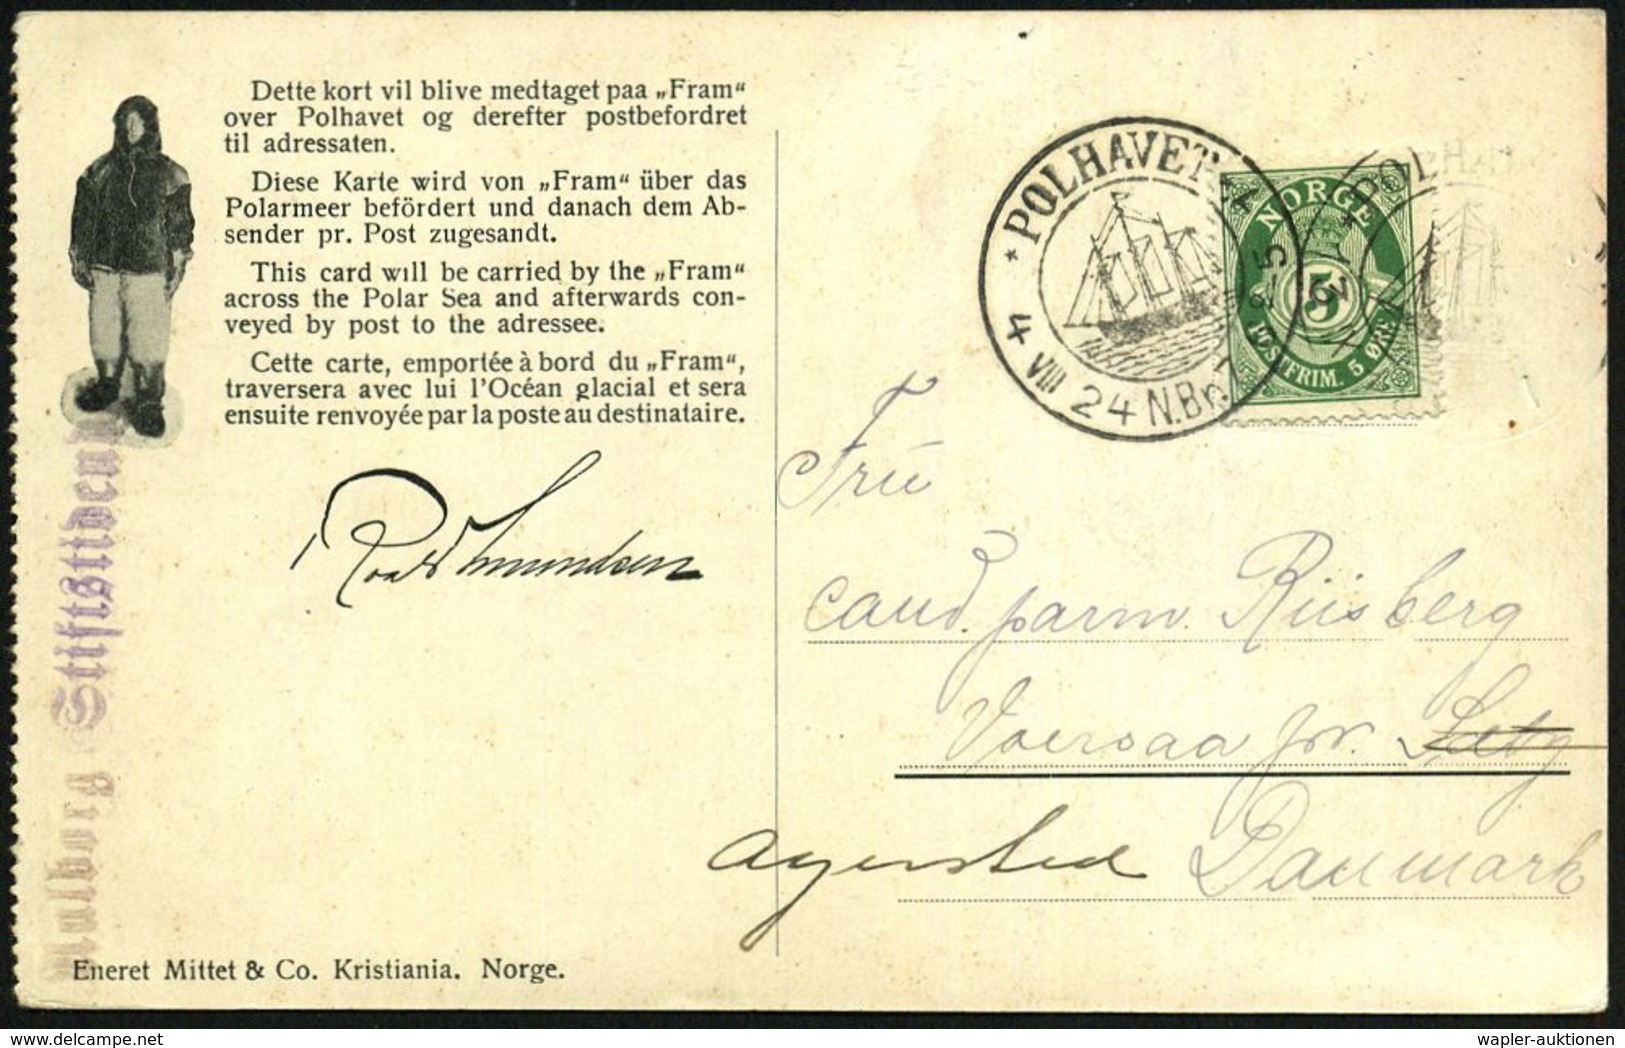 Dette kort vil blive medtaget paa „Fram“
over Polhavet og derefter postbefordret
til adressaten.
Diese Karte wird von „Fram“ über das
Polarmeer befördert und danach dem Ab-
sender pr. Post zugesandt.
This card will be carried by the „Fram“
across the Polar Sea and afterwards con-
veyed by post to the adressee.
Cette carte, emportée à bord du „Fram“,
traversera avec lui l'Océan glacial et sera
ensuite renvoyée par la poste au destinataire.
Roald Amundsen
Aalborg Stiftstidend
Eneret Mittet & Co. Kristiania. Norge.
* POLHAVET
4 VIII 24 N.Br.
NORGE
5
POSTFRIM. 5 ØRE
POLHAV
Frü
cand. parm. Riisberg
Voersaa pr.
Agersted Danmark
wapler-auktionen